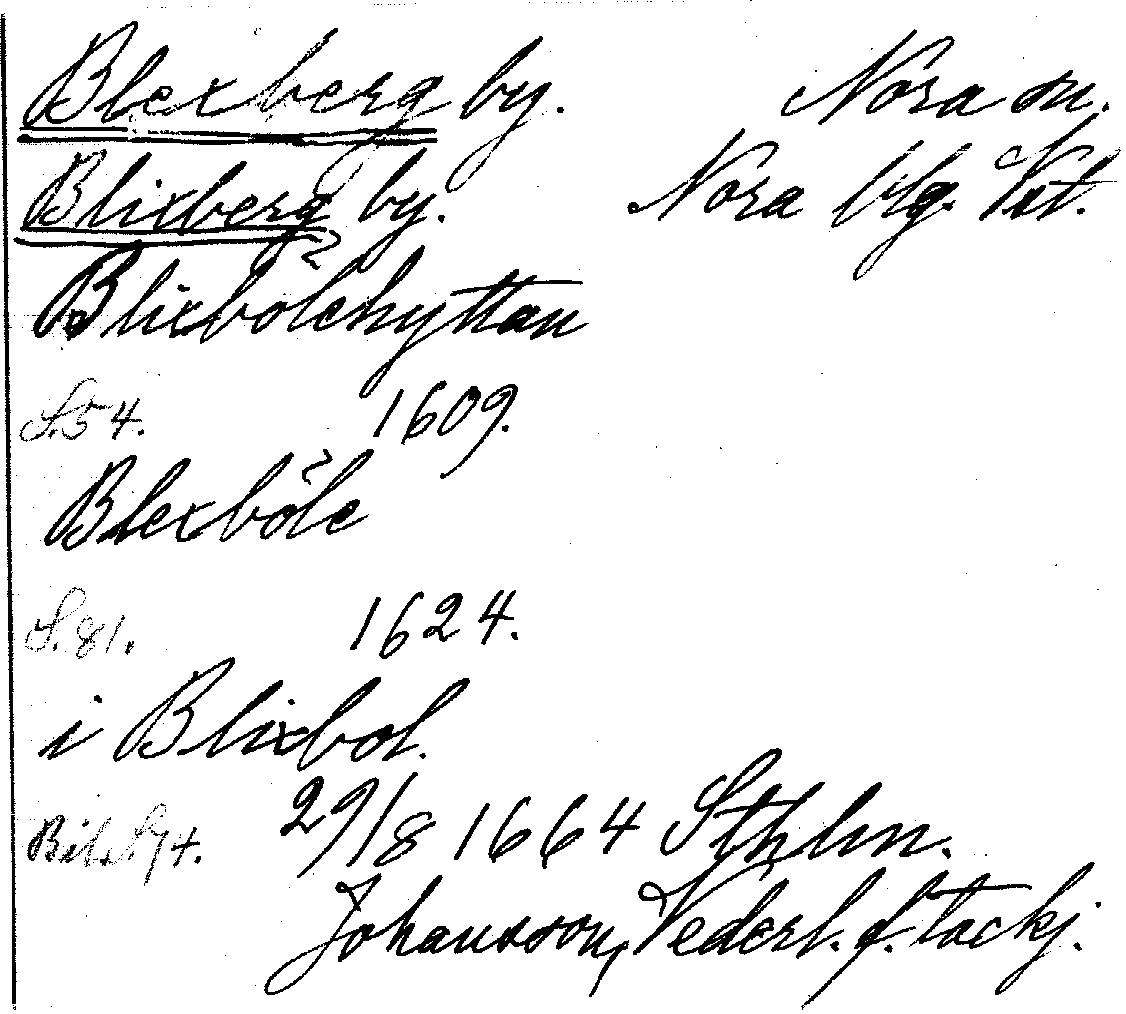 Blexberg by. Nora sn.
Blixberg by. Nora blg. Vst.
Blixbölehyttan
S.54. 1609.
Blexböle
S.81. 1624.
i Blixbol.
Bil. S.74. 29/8 1664 Sthlm.
Johansson, Nederl. f. tackj.